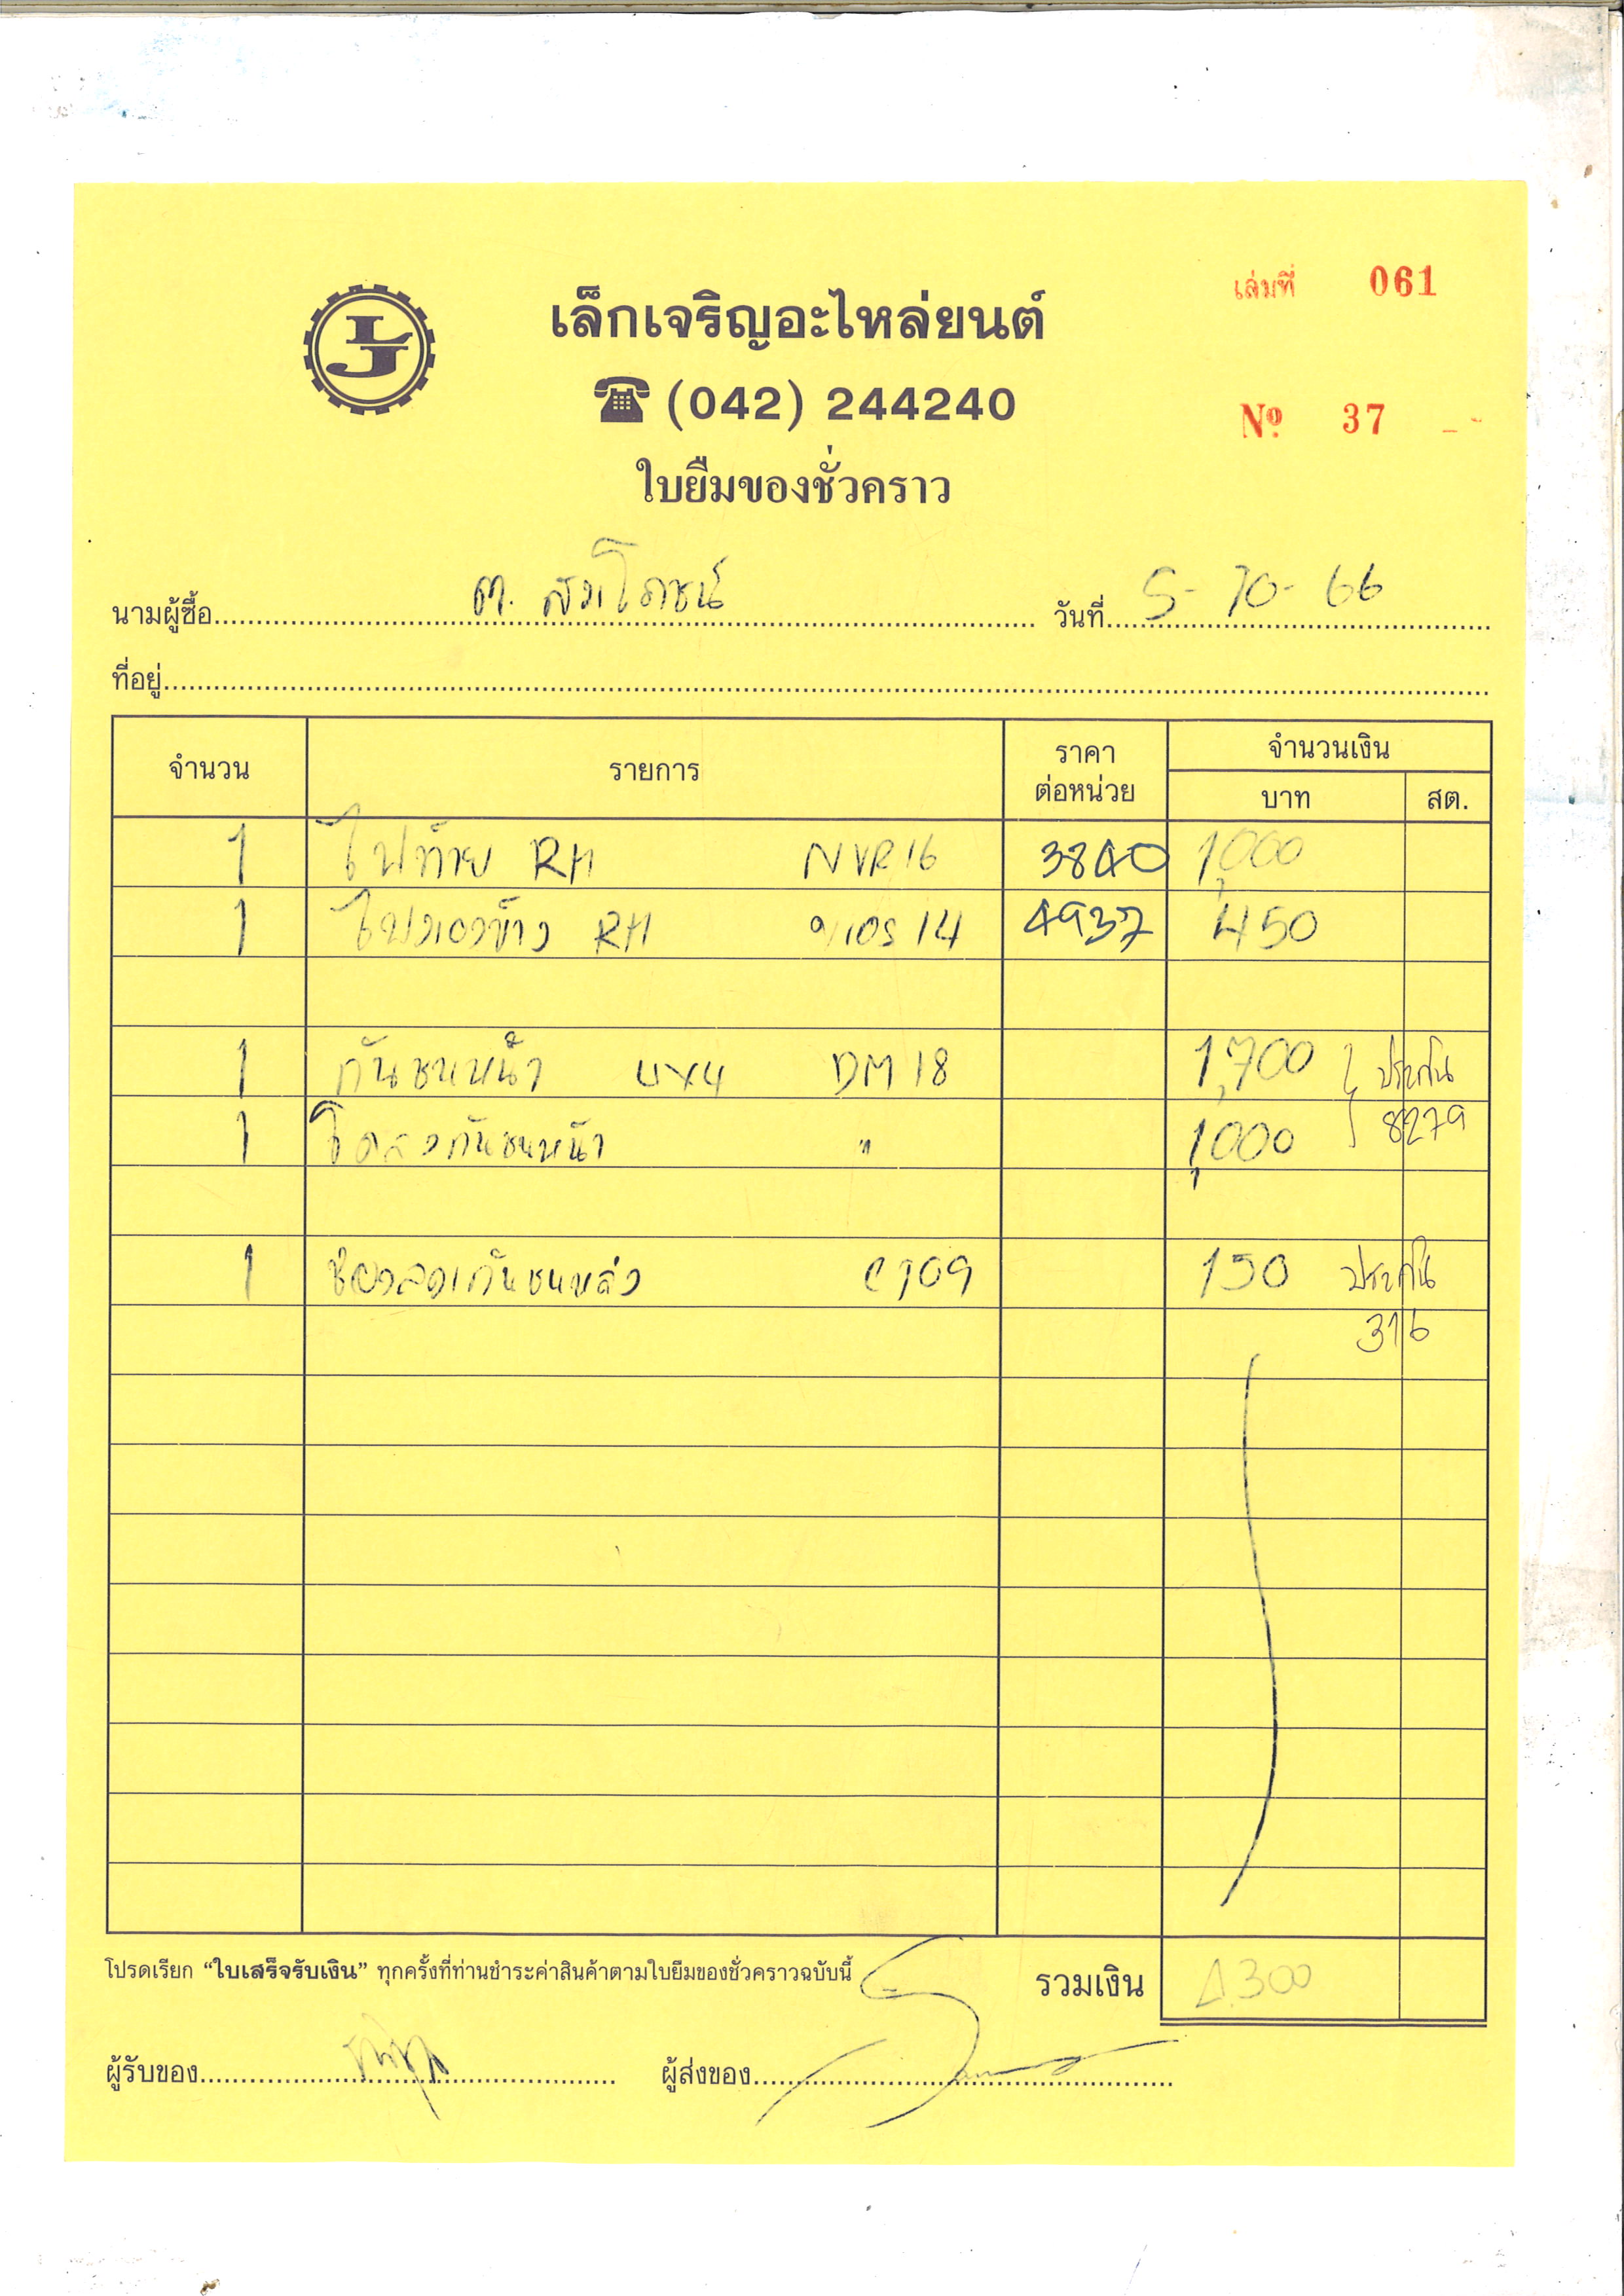 เล่มที่ 061
LJ
เล็กเจริญอะไหล่ยนต์
(042) 244240
Nº 37
ใบยืมของชั่วคราว
นามผู้ซื้อ ต. สังเโภชน์ วันที่ 5-10-66
ที่อยู่
จำนวน รายการ ราคาต่อหน่วย จำนวนเงิน
บาท สต.
1 ไฟท้าย RH NVR16 3840 1,000
1 ไฟมองข้าง RH วีออส 14 4937 450
1 กันชนหน้า 4x4 DM18 1,700 ประกัน
1 โครงกันชนหน้า " 1,000 8279
1 กันชนหลัง C109 150 ประกัน
316
โปรดเรียก “ใบเสร็จรับเงิน” ทุกครั้งที่ท่านชำระค่าสินค้าตามใบยืมของชั่วคราวฉบับนี้
รวมเงิน 4,300
ผู้รับของ ผู้ส่งของ